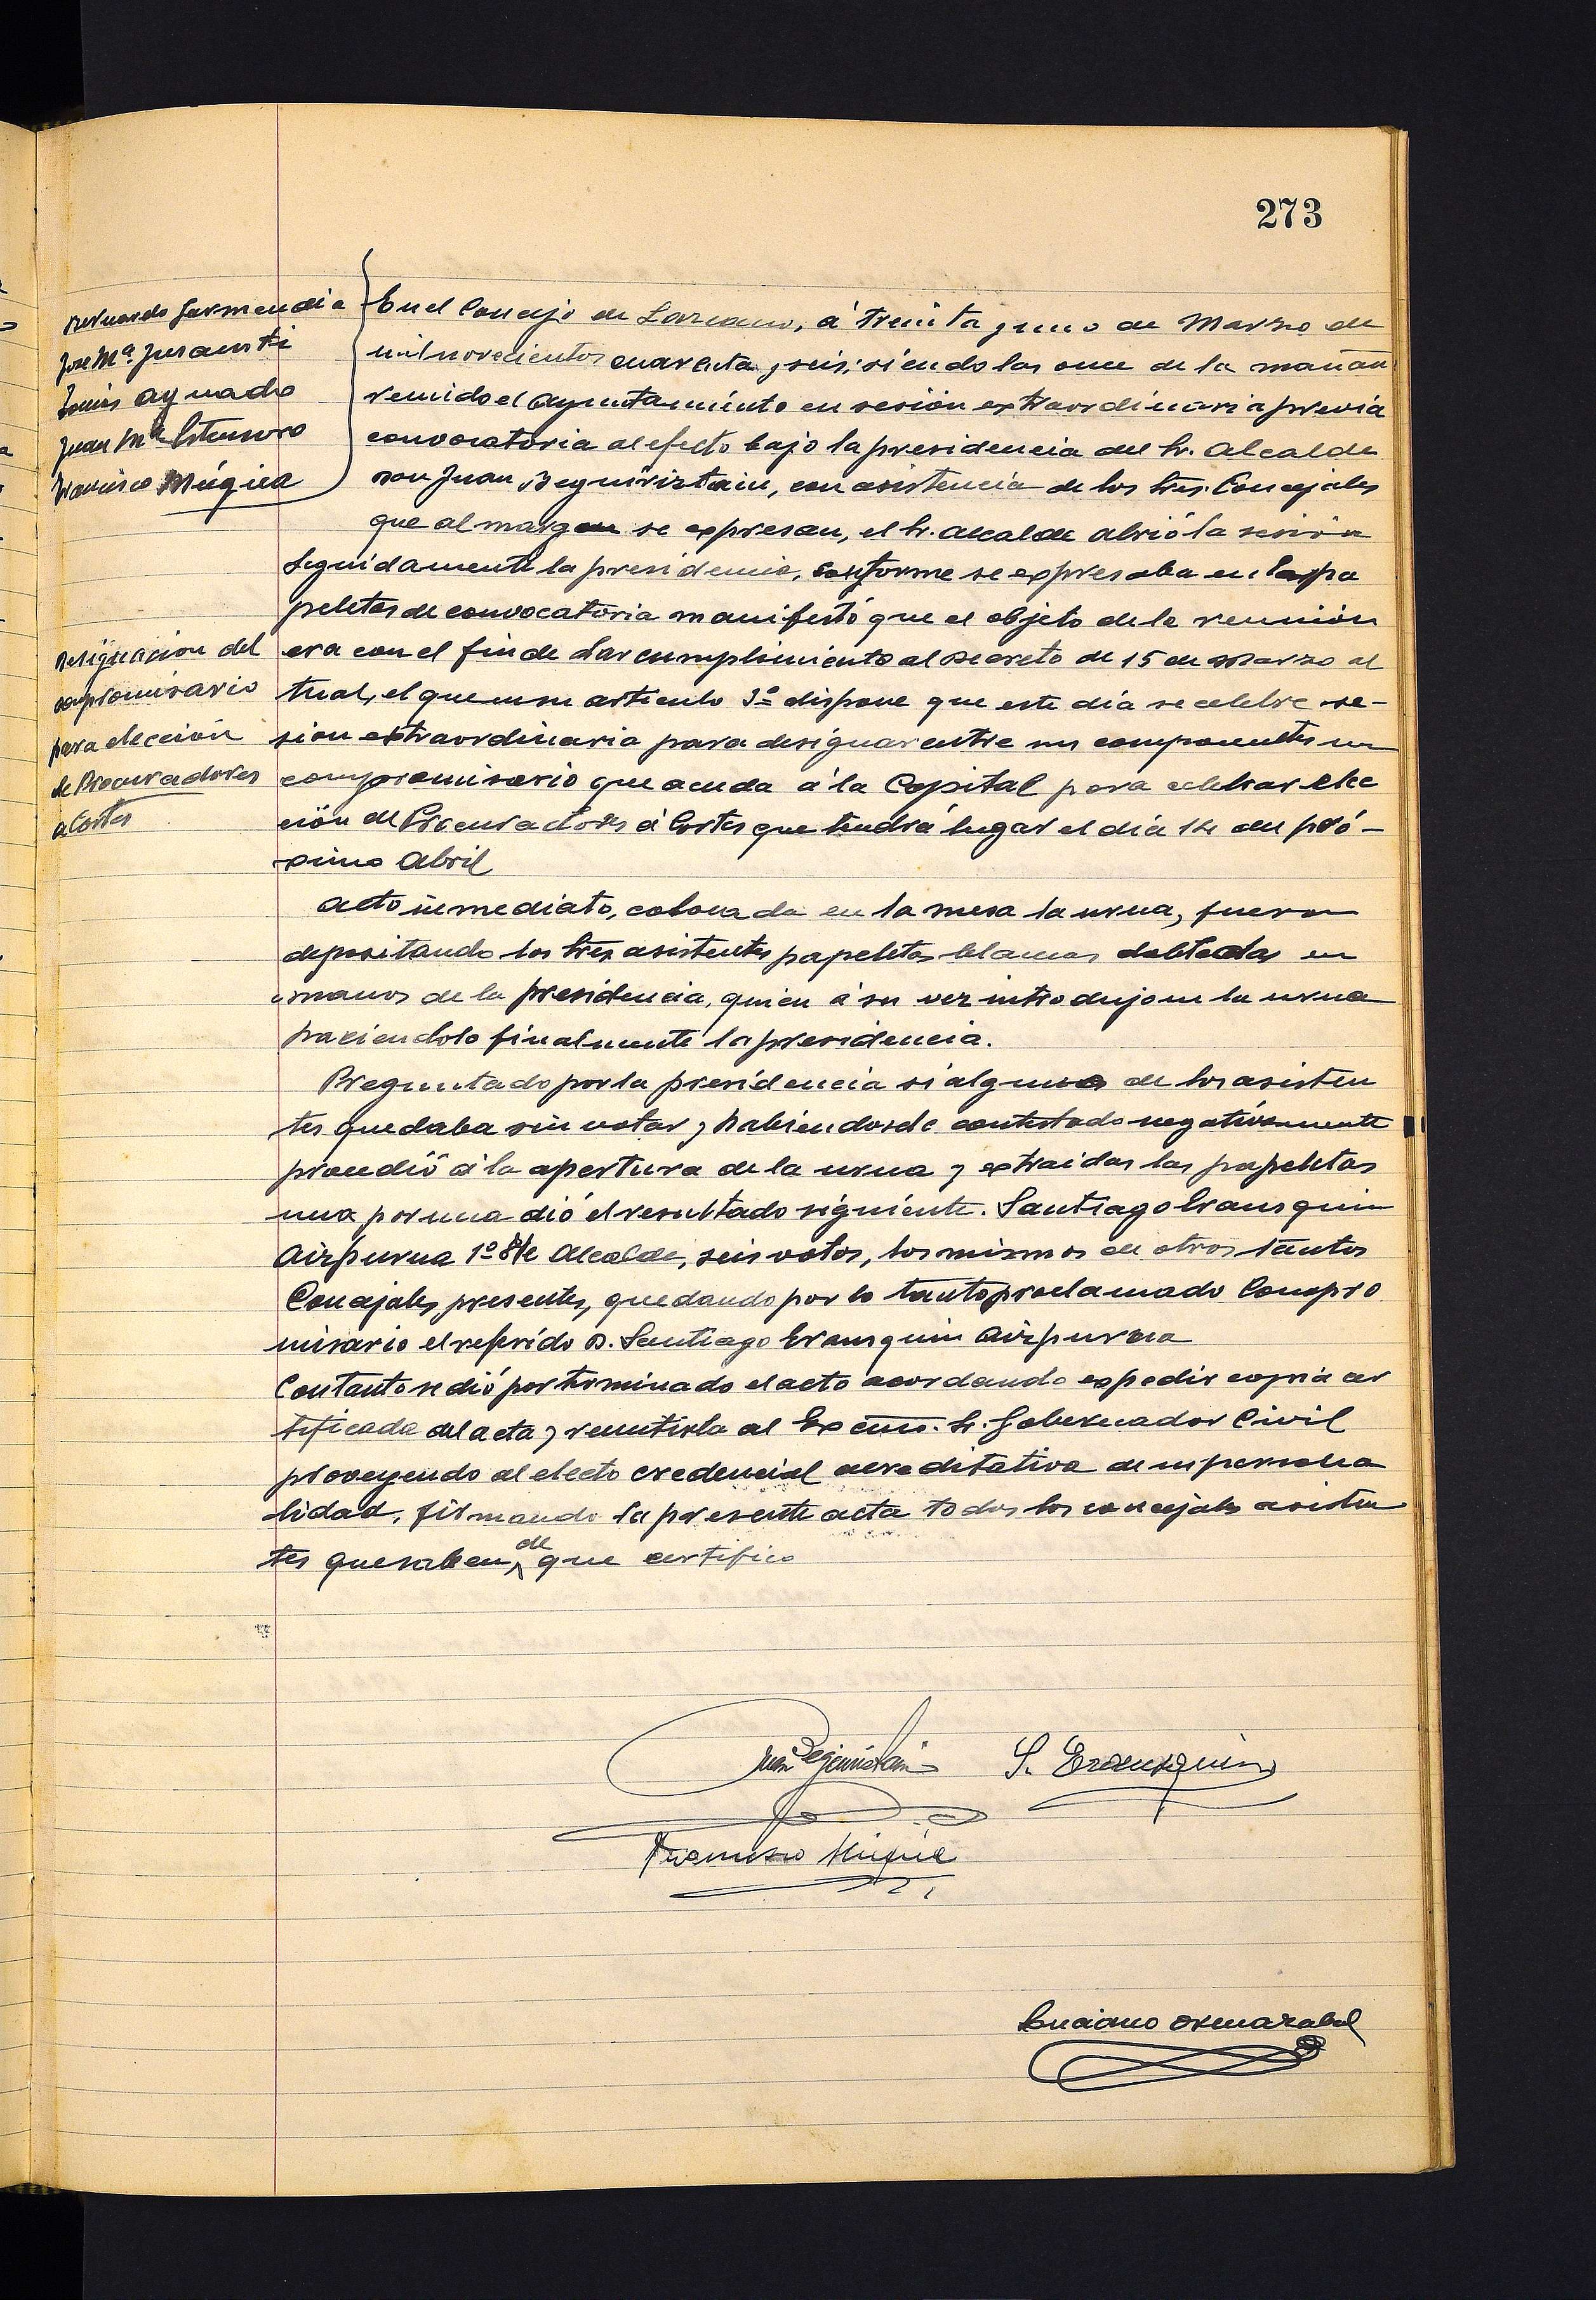 273
Bernardo Garmendia
José Mª Insausti
Tomás Aguado
Juan Mª Estensoro
Francisco Múgica
En el Concejo de Lazcano, á treinta y uno de Marzo de
mil novecientos cuarenta y seis; siéndo las once de la mañana
reunido el Ayuntamiénto en sesión extraordinaria previa
convocatoria al efecto bajo la presidencia del Sr. Alcalde
Don Juan Beguiristain, con asistencia de los Sres. Concejales
que al margen se expresan, el Sr. Alcalde abrió la sesión
Seguidamente la presidencia, conforme se expresaba en la pa
peletas de convocatoria manifestó que el objeto de la reunión
Designacion del
compromisario
para elección
de Procuradores
a Cortes
era con el fin de dar cumplimiento al Decreto de 15 de Marzo ac
tual, el que en su articulo 3º dispone que este día se celebre se-
sion extraordinaria para designar entre sus componentes un
compromisario que acuda á la Capital para celebrar elec
ción de Procuradores á Cortes que tendrá lugar el día 14 del pró-
ximo Abril
Acto inmediato, colocada en la mesa la urna, fueron
depositando los Sres. asistentes papeletas blancas dobladas en
manos de la presidencia, quien á su vez introdujo en la urna
haciendolo finalmente la presidencia.
Preguntado por la presidencia si alguno de los asisten
tes quedaba sin votar y habiendosele contestado negativamente
procedió á la apertura de la urna y extraidas las papeletas
una por una dió el resultado siguiente. Santiago Erausquin
Aizpurua 1º Tte Alcalde, seis votos, los mismos de otros tantos
Concejales presentes, quedando por lo tanto proclamado Compro
misario el referido D. Santiago Erausquin Aizpurua
Con tanto se dió por terminado el acto acordando expedir copia cer
tificada del acta y remitirla al Excmo. Sr. Gobernador Civil
proveyendo al electo credencial acreditativa de su persona
lidad, firmando la presente acta todos los concejales asisten
tes que saben, de que certifico
Juan Beguiristain
S. Erausquin
Francisco Múgica
Luciano Ormazabal